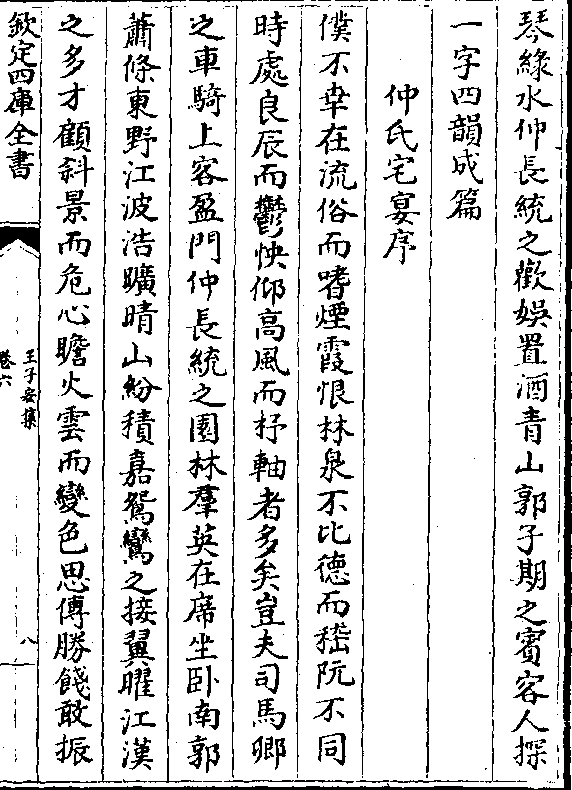 琴緑水仲長統之歡娯置酒青山郭子期之賓客人探
一字四韻成篇
仲氏宅宴序
僕不幸在流俗而嗜煙霞恨林泉不比德而嵇阮不同
時處良辰而鬱怏仰高風而杼軸者多矣豈夫司馬卿
之車騎上客盈門仲長統之園林羣英在席坐卧南郭
蕭條東野江波浩曠晴山紛積嘉鴛鸞之接翼曜江漢
之多才顧斜景而危心瞻火雲而變色思傳勝餞敢振
欽定四庫全書
王子安集
卷六
八